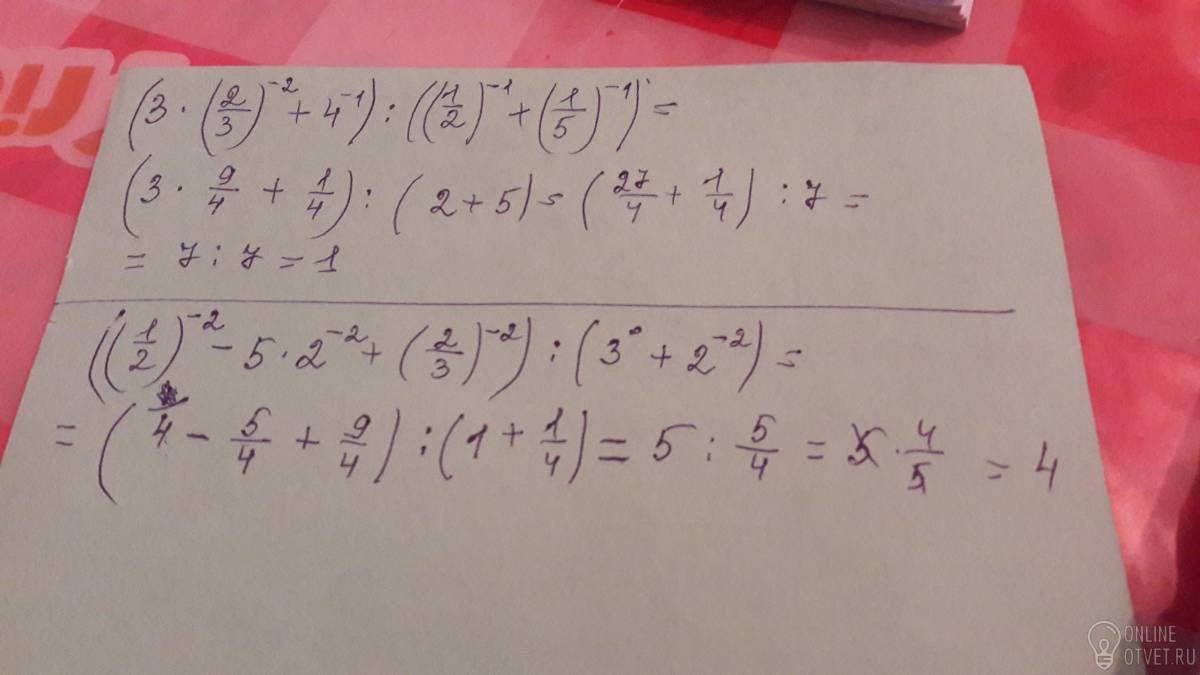 (3 · (2/3)^-2 + 4^-1) : ((1/2)^-1 + (1/5)^-1) =
(3 · 9/4 + 1/4) : (2 + 5) = (27/4 + 1/4) : 7 =
= 7 : 7 = 1
((1/2)^-2 - 5 · 2^-2 + (2/3)^-2) : (3^0 + 2^-2) =
= (4 - 5/4 + 9/4) : (1 + 1/4) = 5 : 5/4 = 5 · 4/5 = 4
ONLINE
OTVET.RU